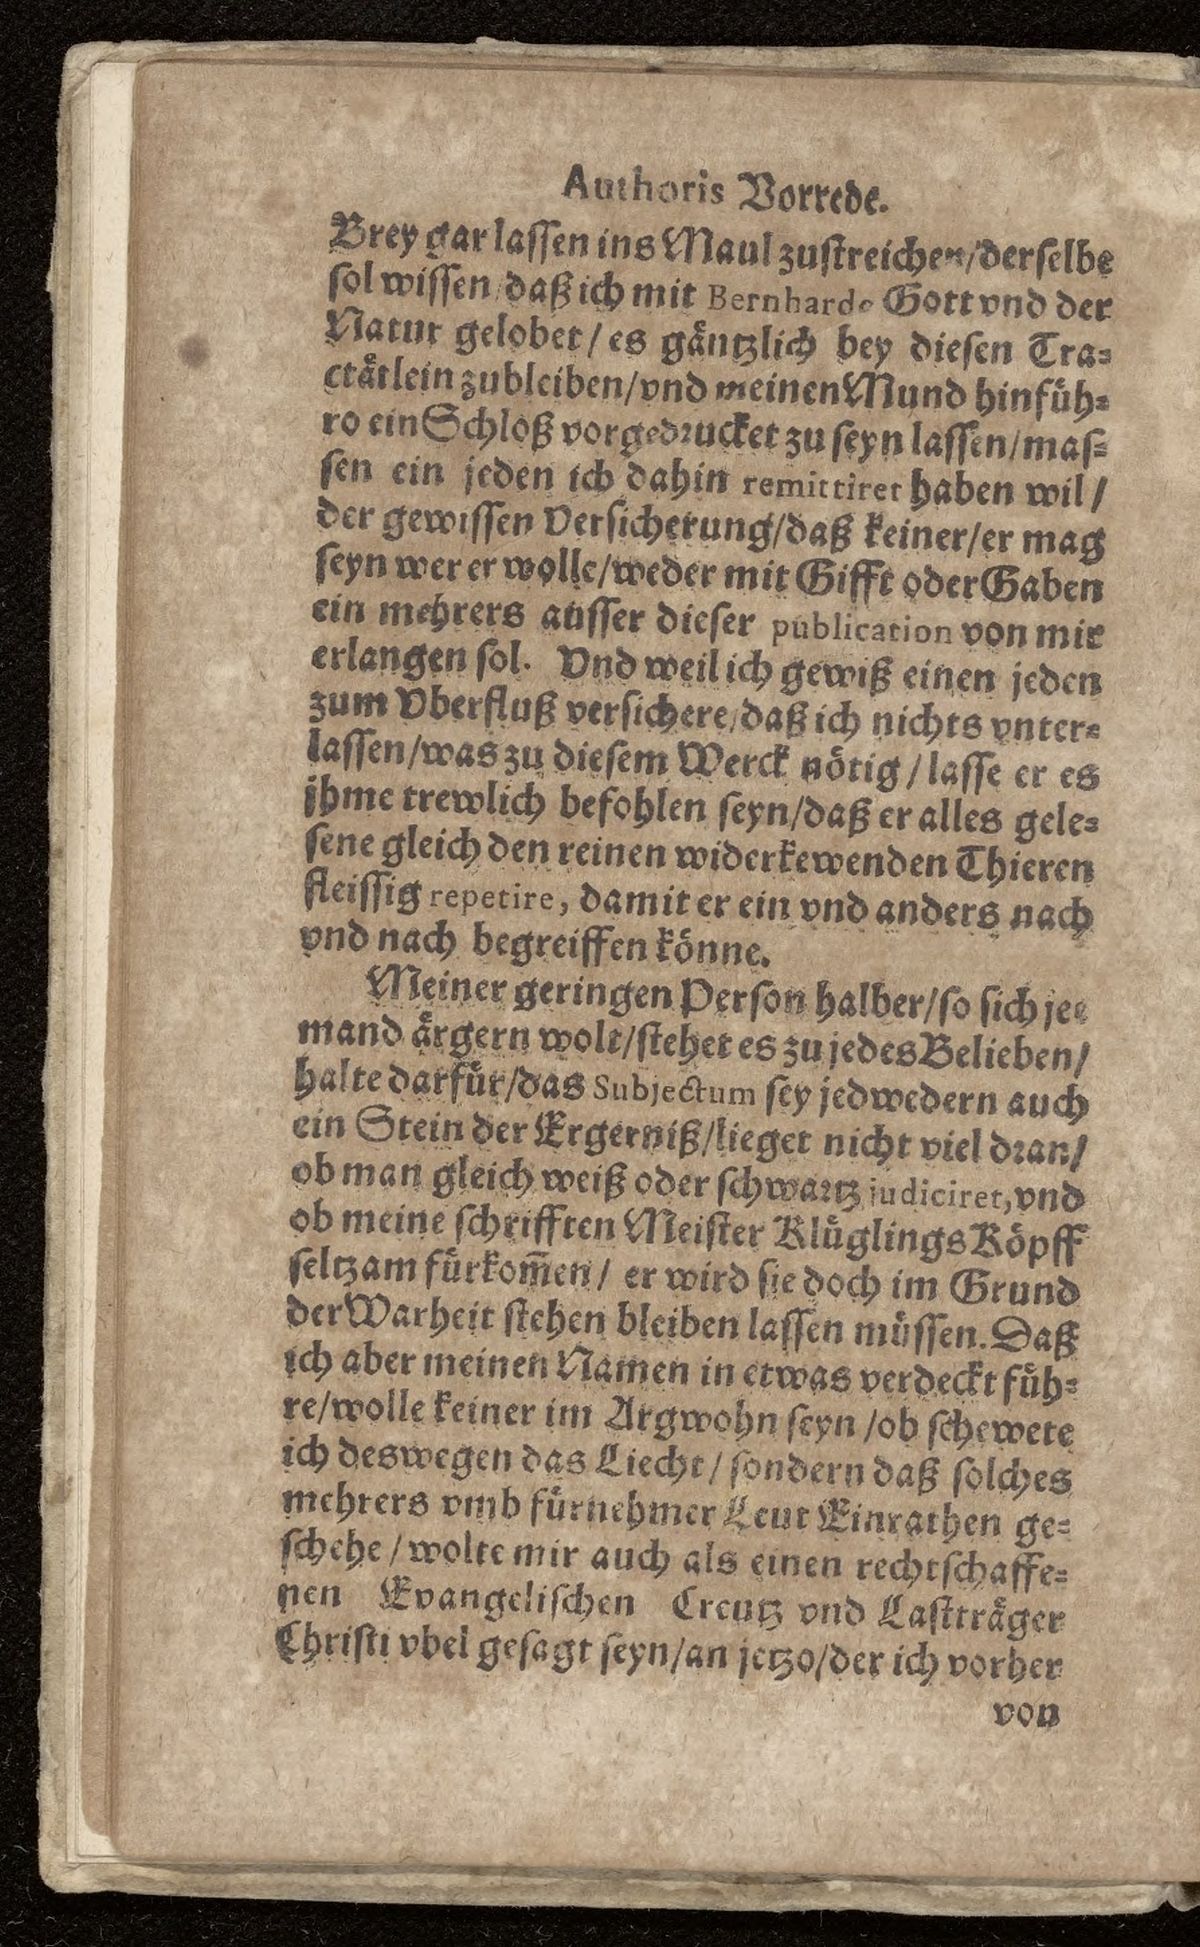 Authoris Vorrede.
Brey gar lassen ins Maul zustreichen/derselbe
sol wissen/daß ich mit Bernhardo Gott vnd der
Natur gelobet/es gäntzlich bey diesen Tra-
ctätlein zubleiben/vnd meinen Mund hinfüh-
ro ein Schloß vorgedrucket zu seyn lassen/mas-
sen ein jeden ich dahin remittiret haben wil/
der gewissen Versicherung/daß keiner/er mag
seyn wer er wolle/weder mit Gifft oder Gaben
ein mehrers ausser dieser publication von mir
erlangen sol. Vnd weil ich gewiß einen jeden
zum Vberfluß versichere/daß ich nichts vnter-
lassen/was zu diesem Werck nötig/lasse er es
jhme trewlich befohlen seyn/daß er alles gele-
sene gleich den reinen widerkewenden Thieren
fleissig repetire, damit er ein vnd anders nach
vnd nach begreiffen könne.
Meiner geringen Person halber/so sich je-
mand ärgern wolt/stehet es zu jedes Belieben/
halte darfür/das Subjectum sey jedwedern auch
ein Stein der Ergerniß/lieget nicht viel dran/
ob man gleich weiß oder schwartz judiciret, vnd
ob meine schrifften Meister Klüglings Köpff
seltzam fürkom̄en/er wird sie doch im Grund
der Warheit stehen bleiben lassen müssen. Daß
ich aber meinen Namen in etwas verdeckt füh-
re/wolle keiner im Argwohn seyn/ob schewete
ich deswegen das Liecht/sondern daß solches
mehrers vmb fürnehmer Leut Einrathen ge-
schehe/wolte mir auch als einen rechtschaffe-
nen Evangelischen Creutz vnd Lastträger
Christi vbel gesagt seyn/an jetzo/der ich vorher
von